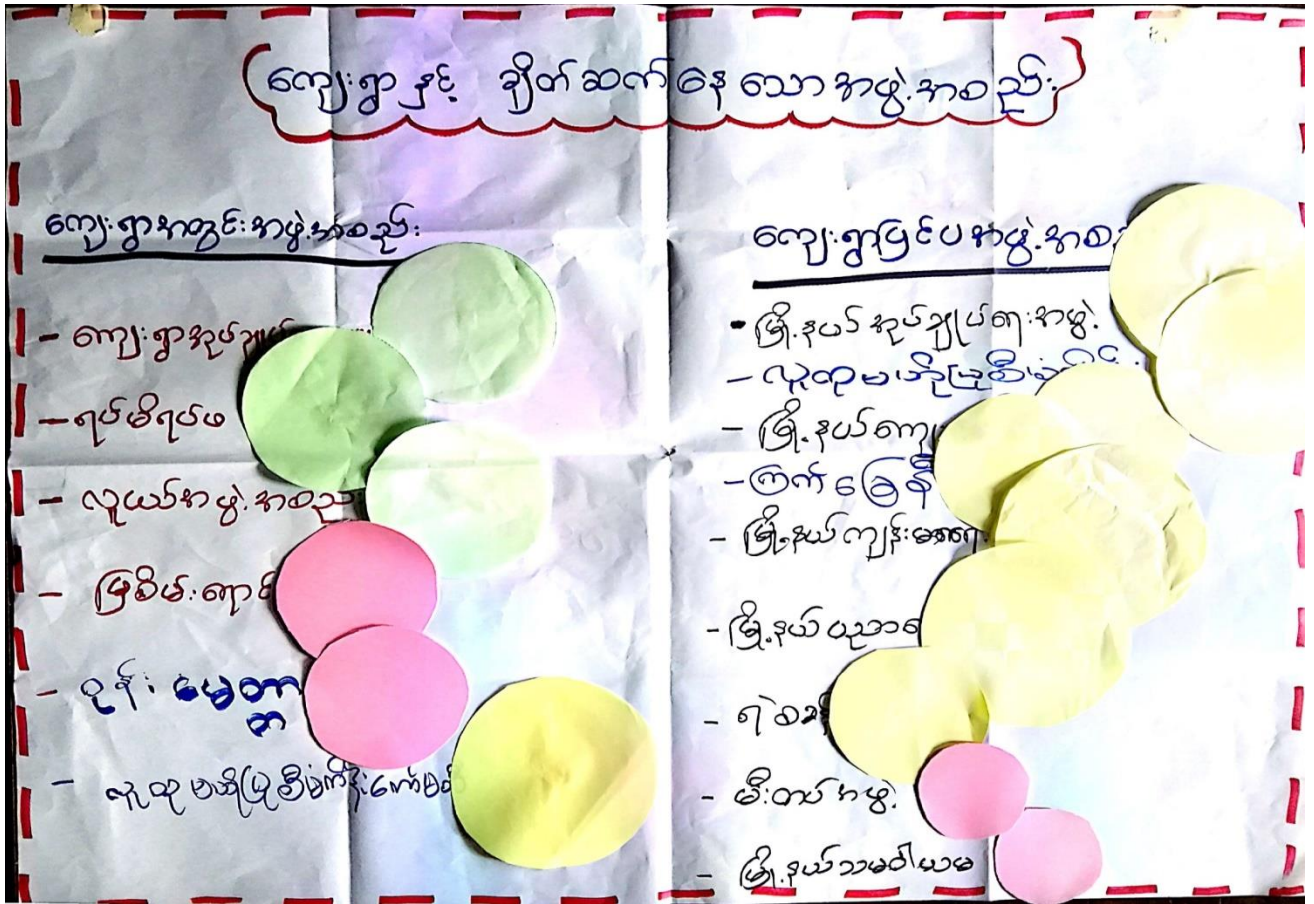 ကျေးရွာနှင့် ချိတ်ဆက်နေသောအဖွဲ့အစည်း
ကျေးရွာအတွင်းအဖွဲ့အစည်း
- ကျေးရွာအုပ်ချုပ်
- ရပ်မိရပ်ဖ
- လူငယ်အဖွဲ့အစည်း
- မြစိမ်းရောင်
- ဇုန်း မေတ္တာ
- လူထုဗဟိုပြုစီမံကိန်းကော်မတီ
ကျေးရွာပြင်ပအဖွဲ့အစည်း
- မြို့နယ်အုပ်ချုပ်ရေးအဖွဲ့
- လူထုဗဟိုပြုစီမံကိန်း
- မြို့နယ်ကျေး
- ကြက်ခြေနီ
- မြို့နယ်ကျန်းမာရေး
- မြို့နယ်ပညာရေ
- ရဲစခန်
- မီးသတ်အဖွဲ့
- မြို့နယ်သမဝါယမ